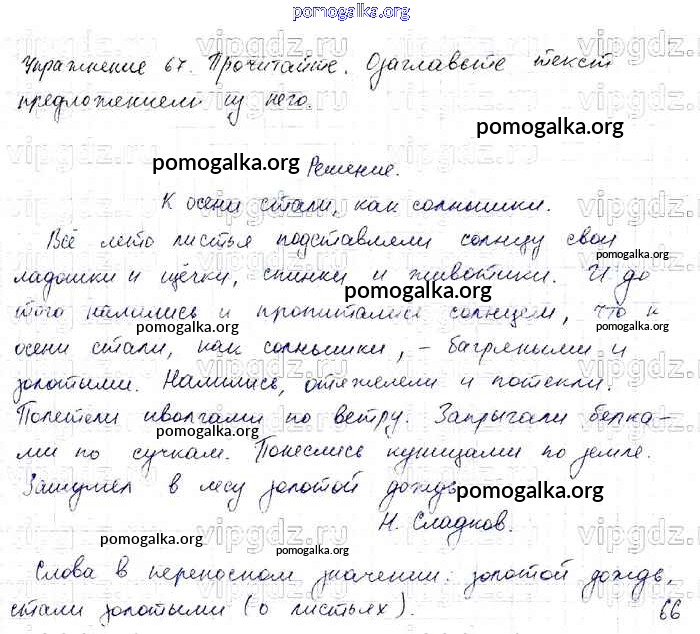 pomogalka.org
Упражнение 67. Прочитайте. Озаглавьте текст
предложением из него.
pomogalka.org
pomogalka.org
Решение.
К осени стали, как солнышки.
Всё лето листья подставляли солнцу свои
pomogalka.org
ладошки и щёчки, спинки и животики. И до
pomogalka.org
того налились и пропитались солнцем, что к
pomogalka.org
pomogalka.org
осени стали, как солнышки, – багряными и
золотыми. Налились, отяжелели и потекли.
Полетели иволгами по ветру. Запрыгали белка-
pomogalka.org
ми по сучкам. Понеслись куницами по земле.
Зашумел в лесу золотой дождь
pomogalka.org
Н. Сладков.
pomogalka.org
pomogalka.org
Слова в переносном значении: золотой дождь,
стали золотыми (о листьях).
66